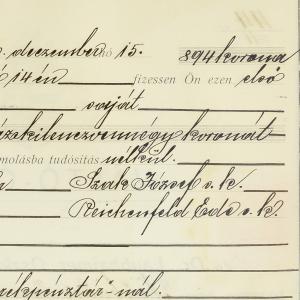 deczember hó 15. 894 korona
14 én fizessen Ön ezen első
saját
százkilenczvennégy koronát
molásba tudósítás nélkül.
Szak József s. k.
Reichenfeld Ede s. k.
ékpénztár-nál.